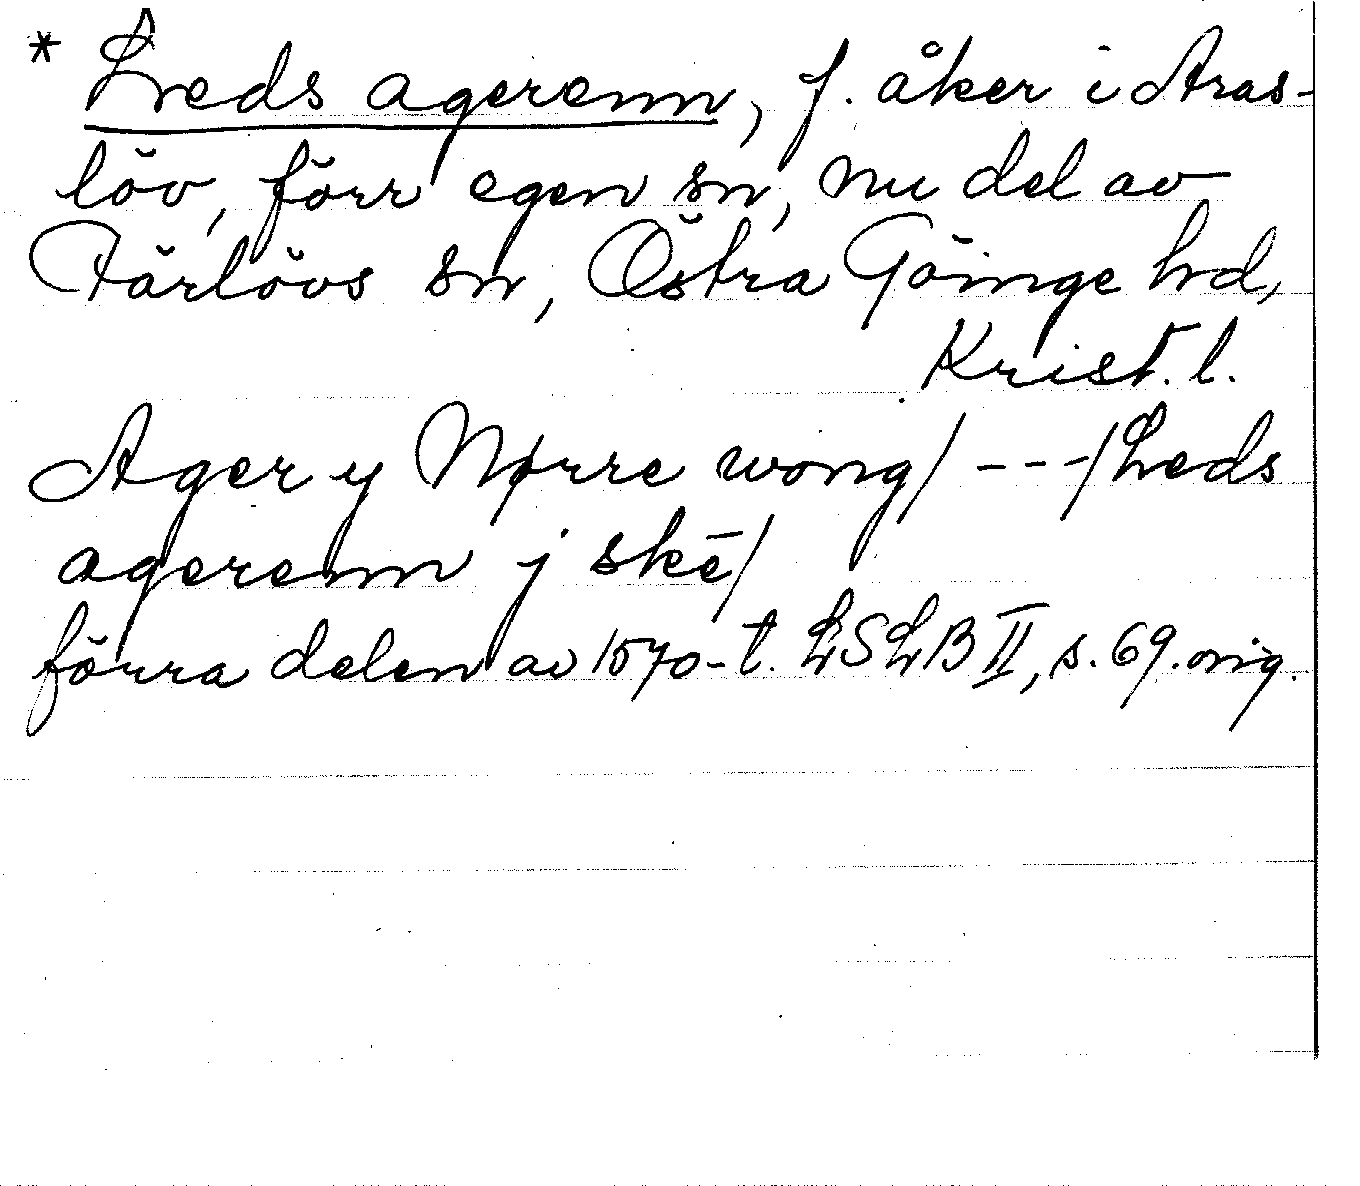 * Leds agerenn, f. åker i Aras-
löv, förr egen sn, nu del av
Färlövs sn, Östra Göinge hd,
Krist. l.
Ager y Nørre wong/ ---/Leds
agerenn j skē/
förra delen av 1570-t. LSLB II, s. 69. orig.